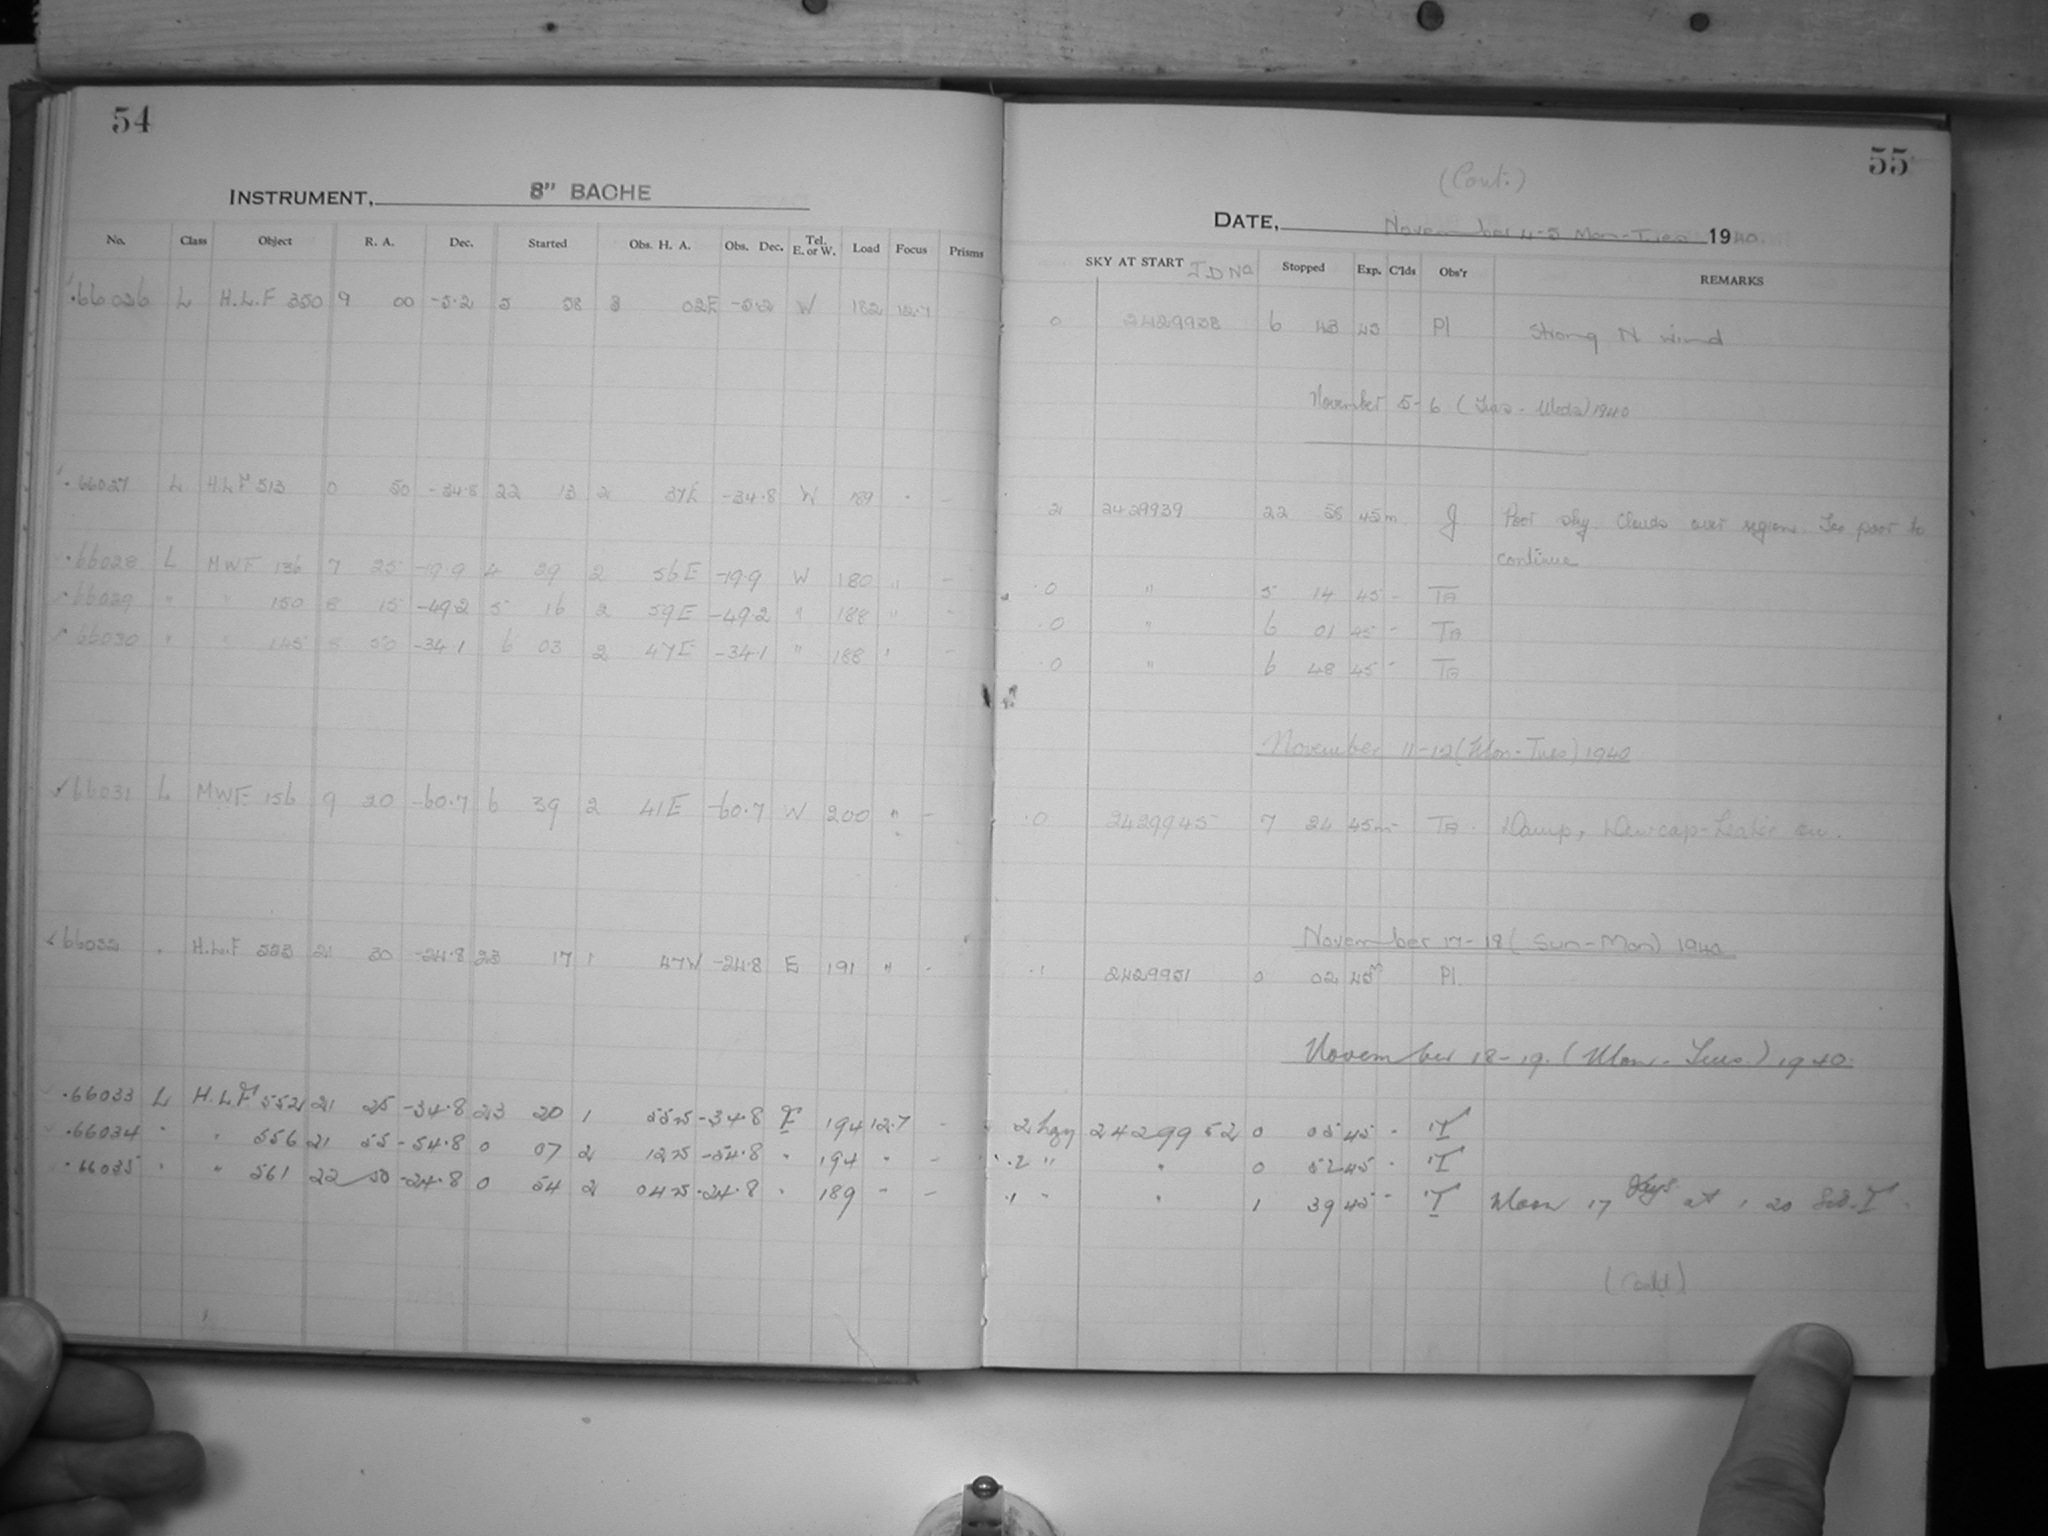 54
INSTRUMENT, 8" BACHE
No. Class Object R. A. Dec. Started Obs. H. A. Obs. Dec. Tel. E. or W. Load Focus Prisms
66026 L H.L.F 350 9 00 -5.2 5 58 3 02E -5.2 W 182 12.7
66027 L H.L.F 513 0 50 -34.8 22 13 2 37E -34.8 W 189 " -
66028 L MWF 136 7 25 -19.9 4 29 2 56E -19.9 W 180 " -
66029 " " 150 8 15 -49.2 5 16 2 59E -49.2 " 188 " -
66030 " " 145 8 50 -34.1 6 03 2 47E -34.1 " 188 " -
66031 L MWF 156 9 20 -60.7 6 39 2 41E -60.7 W 200 " -
66032 . H.L.F 553 21 30 -24.8 23 17 1 47W -24.8 E 191 " -
66033 L H.L.F 552 21 25 -34.8 23 20 1 55 -34.8 E 194 12.7 -
66034 " " 556 21 55 -54.8 0 07 2 12 -54.8 " 194 " -
66035 " " 561 22 50 -24.8 0 54 2 04 -24.8 " 189 - -
55
(Cont.)
DATE, November 4-5 Mon-Tues 1940
SKY AT START J D No Stopped Exp. C'lds Obs'r REMARKS
0 2429938 6 43 45 Pl Strong N wind
November 5-6 (Tues-Weds) 1940
2 2429939 22 58 45m J Poor sky. Clouds over regions. Too poor to
continue
0 " 5 14 45 - TB
0 " 6 01 45 - TB
0 " 6 48 45 - TB
November 11-12 (Mon-Tues) 1940
0 2429945 7 24 45m - TB Damp, Dewcap-heater on.
November 17-18 (Sun-Mon) 1940
.1 2429951 0 02 45m Pl.
November 18-19. (Mon-Tues.) 1940.
2 hazy 2429952 0 05 45 - T
.2 " " 0 52 45 - T
.1 " " 1 39 45 - T Moon 17 days at 1 20 Sid. T
(Contd)